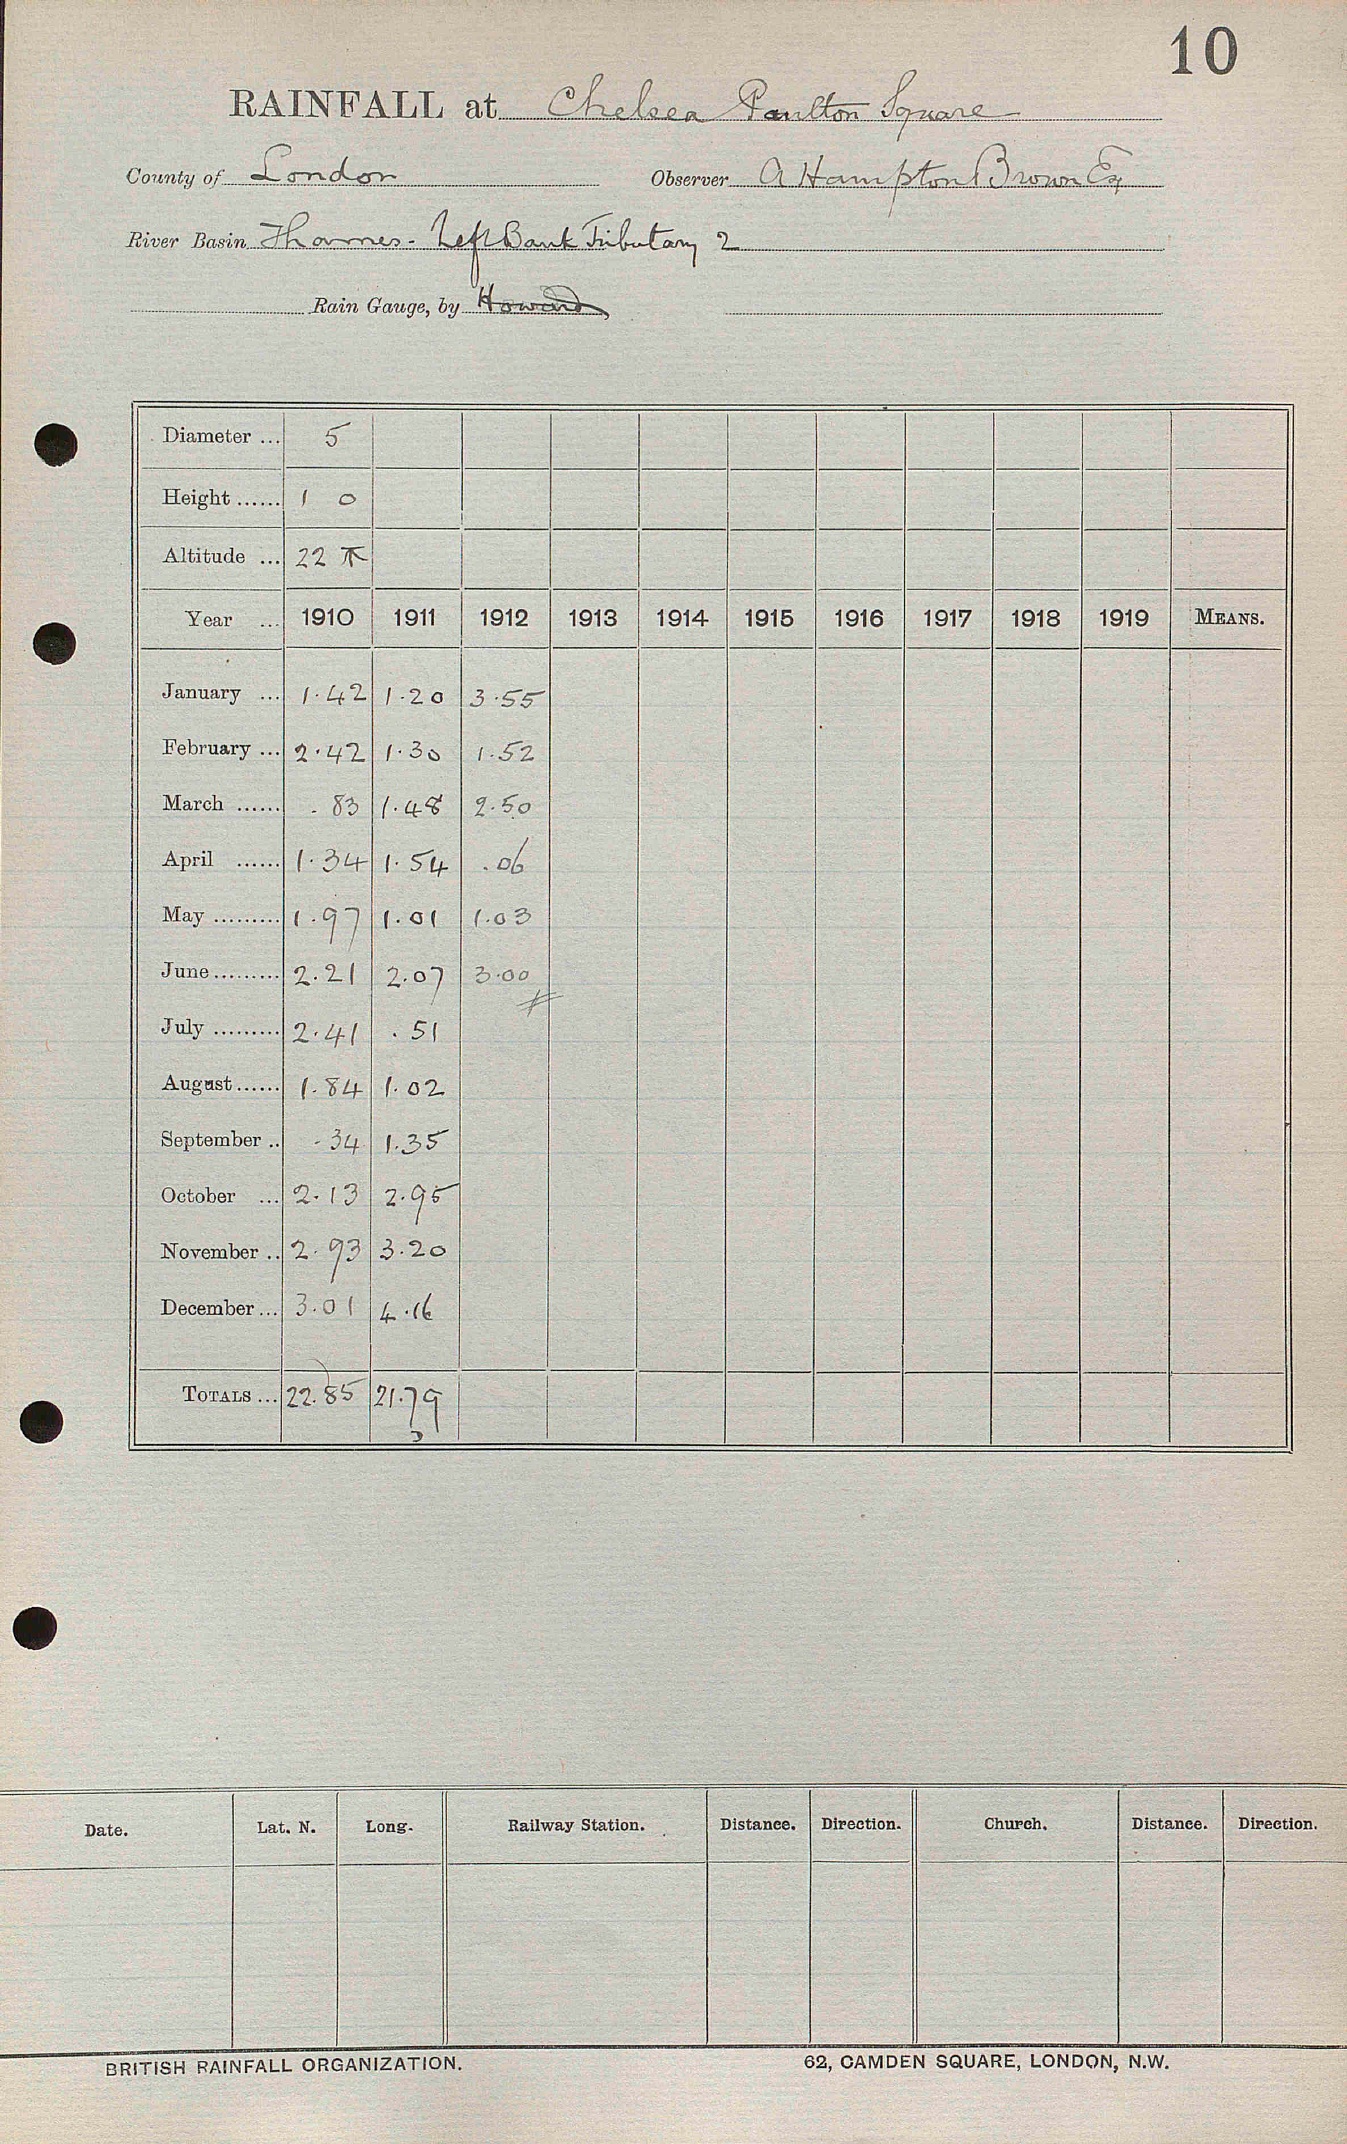 10
RAINFALL at Chelsea Paulton Square
County of London Observer A Hampton Brown Esq
River Basin Thames - Left Bank Tributary 2
Rain Gauge, by Howard
Diameter ... 5
Height ...... 1 0
Altitude ... 22
Year ... 1910 1911 1912 1913 1914 1915 1916 1917 1918 1919 MEANS.
January ... 1.42 1.20 3.55
February ... 2.42 1.30 1.52
March ...... .83 1.48 2.50
April ...... 1.34 1.54 .06
May ......... 1.97 1.01 1.03
June ......... 2.21 2.07 3.00
July ......... 2.41 .51
August ...... 1.84 1.02
September .. .34 1.35
October ... 2.13 2.95
November .. 2.93 3.20
December ... 3.01 4.16
TOTALS ... 22.85 21.79
Date. Lat. N. Long. Railway Station. Distance. Direction. Church. Distance. Direction.
BRITISH RAINFALL ORGANIZATION. 62, CAMDEN SQUARE, LONDON, N.W.